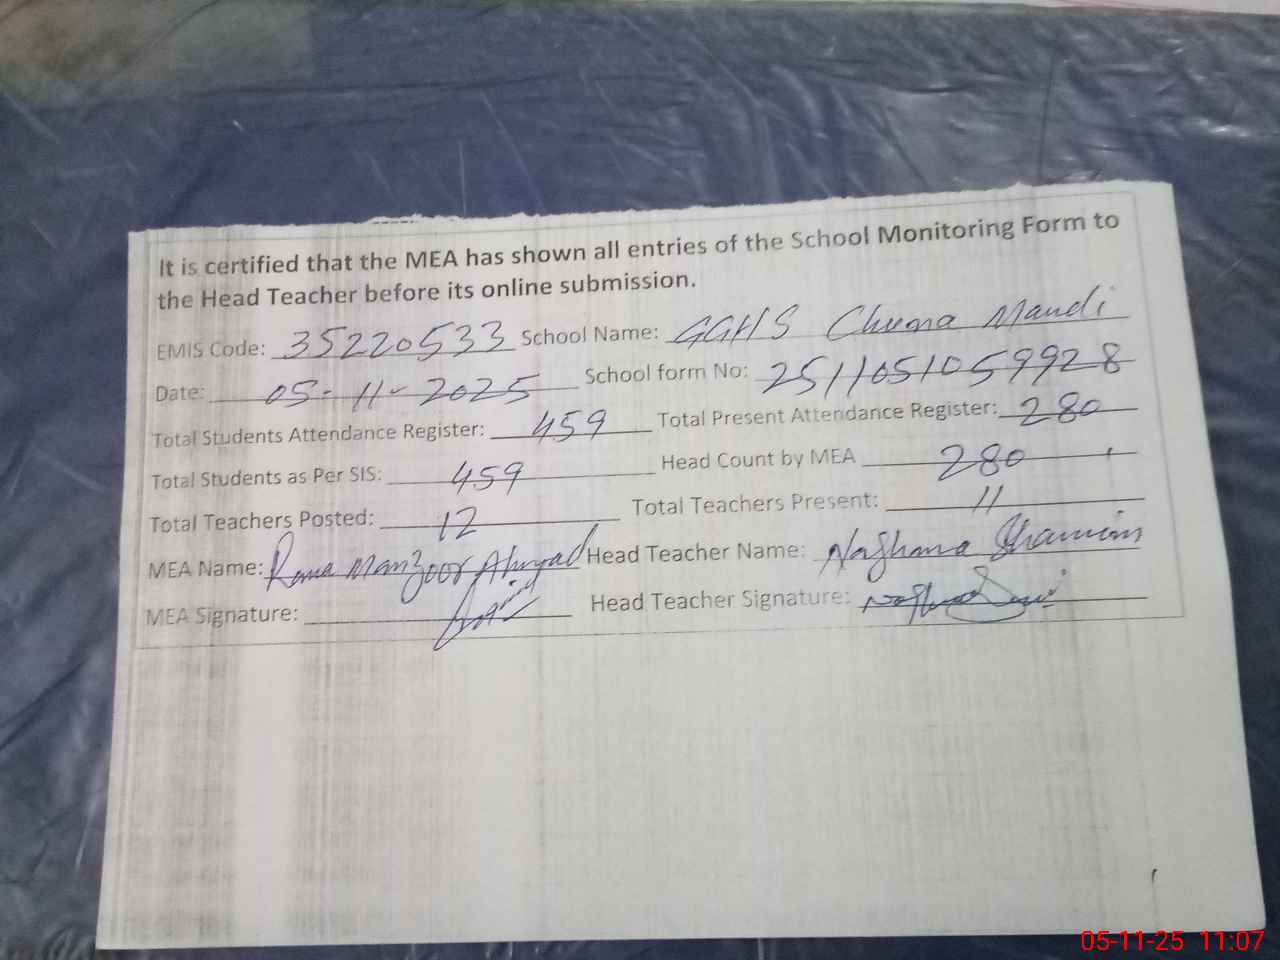 It is certified that the MEA has shown all entries of the School Monitoring Form to
the Head Teacher before its online submission.
EMIS Code: 35220533 School Name: GGHS Chuna Mandi
Date: 05-11-2025 School form No: 2511051059928
Total Students Attendance Register: 459 Total Present Attendance Register: 280
Total Students as Per SIS: 459 Head Count by MEA 280
Total Teachers Posted: 12 Total Teachers Present: 11
MEA Name: Rana Manzoor Ahmad Head Teacher Name: Naghana Shamim
MEA Signature: Head Teacher Signature:
05-11-25 11:07